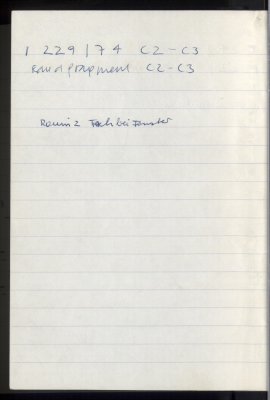 1 229/74 C2-C3
Randfragment C2-C3
Raum 2 Fach bei Fenster